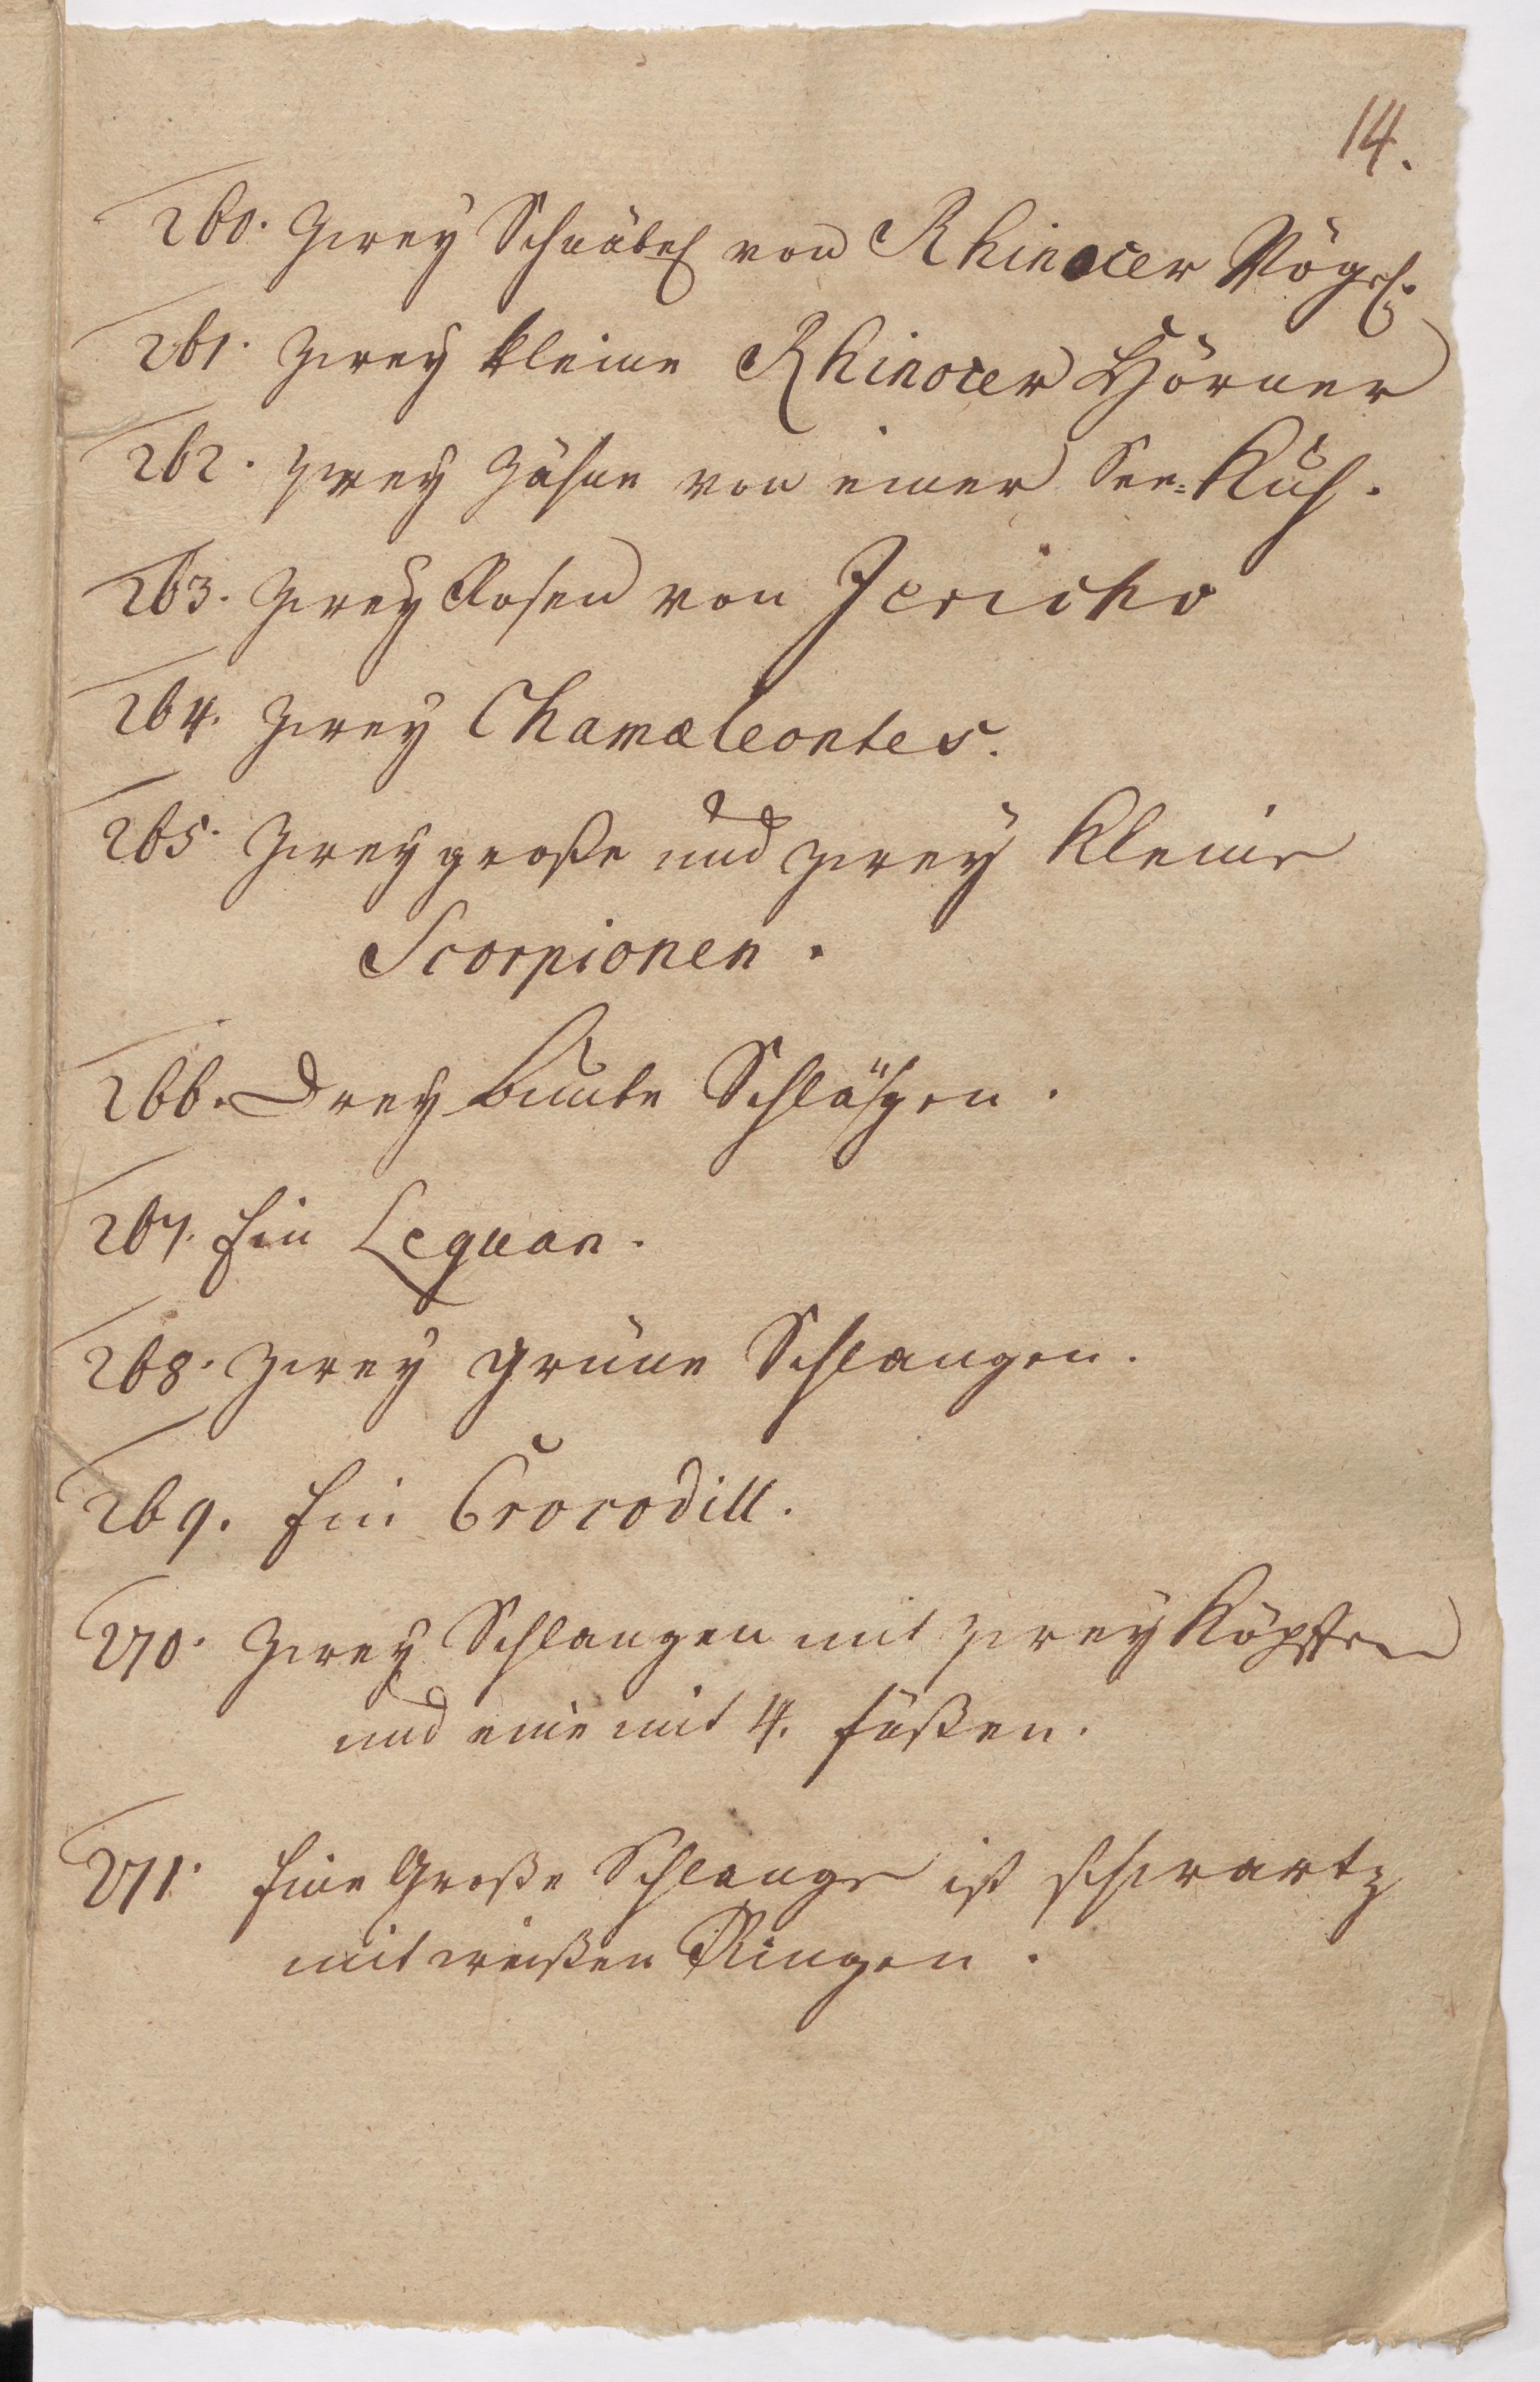 14.
260. Zwey Schnäbel von Rhinocer Vögel.
261. Zwey kleine Rhinocer Hörner
262. zwey Zähne von einer See-Kuh.
263. Zwey Rosen von Jericho
264. Zwey Chamæleontes.
265. Zwey große und zwey kleine
Scorpionen.
266. Drey bunte
267. Ein Leguan.
268. Zwey grüne Schlangen.
269. Ein Crocodill.
270. Zwey Schlangen mit zwey Köpffen
und eine mit 4. füßen.
271. Eine Große Schlange ist schwartz
mit weißen Ringen.